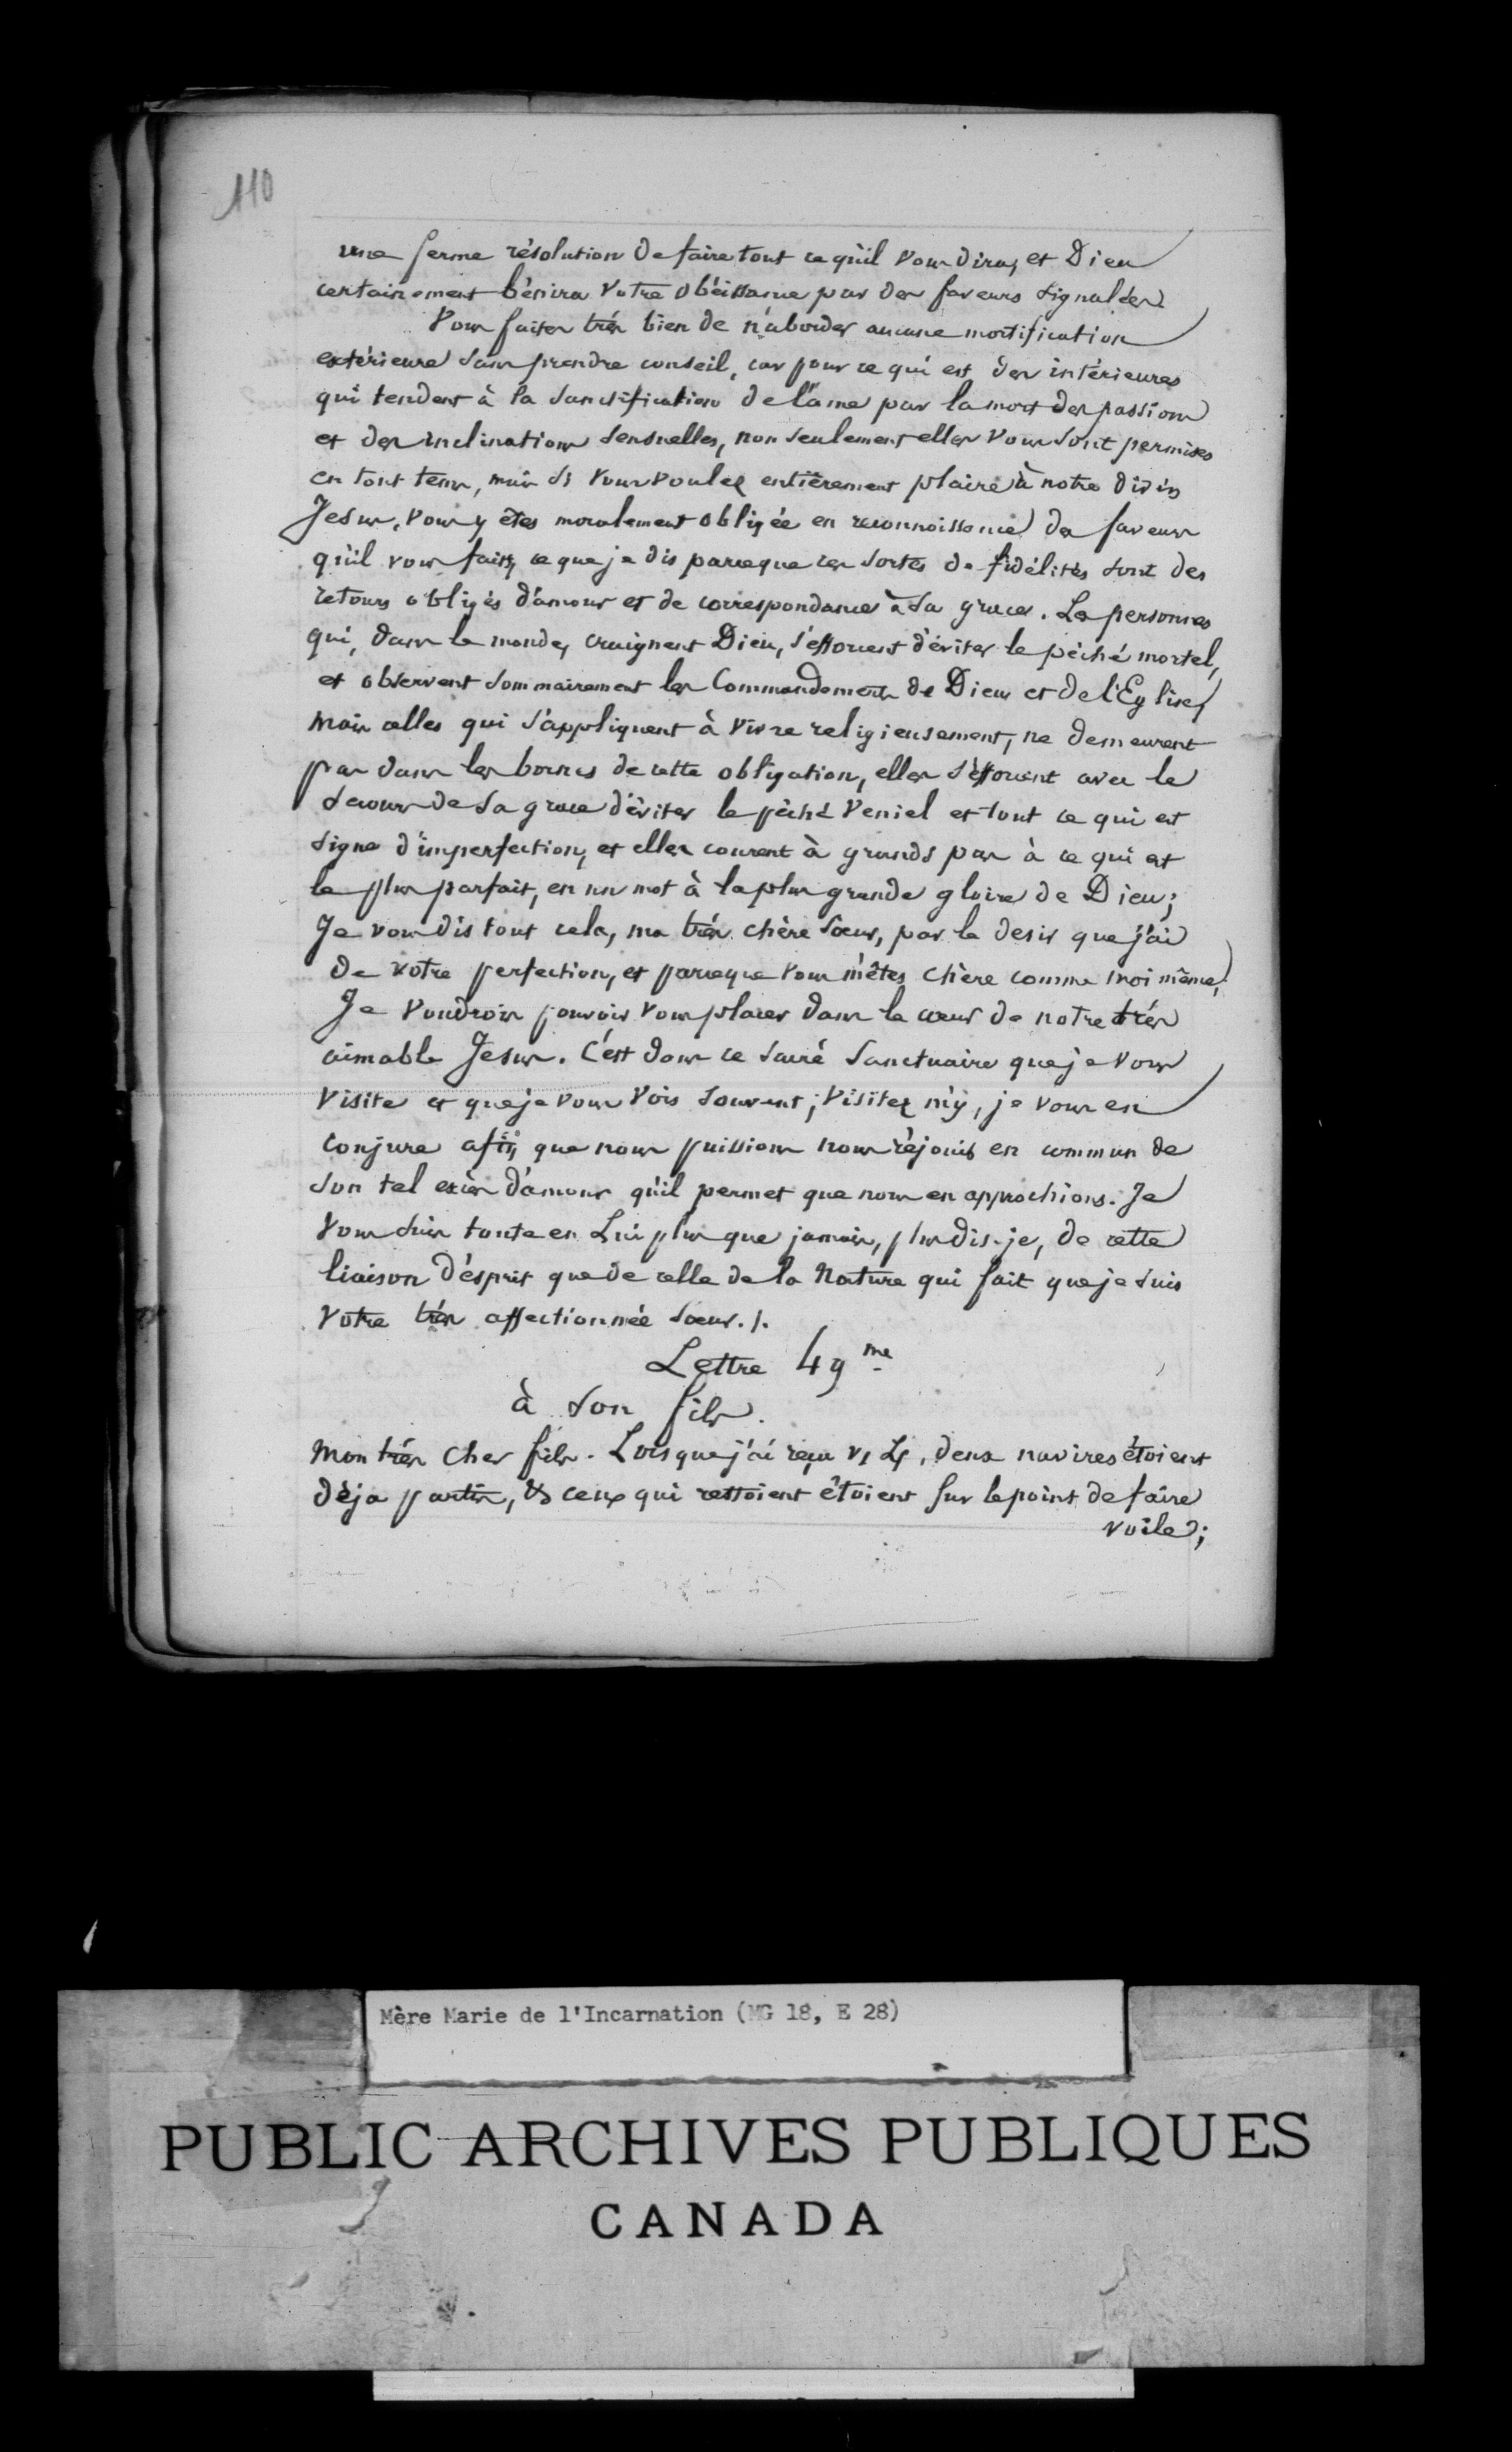 110
une ferme résolution de faire tout ce qu'il vous dira, et Dieu
certainement bénira votre obéissance par des faveurs signalées
Vous faites très bien de n'aborder aucune mortification
extérieure sans prendre conseil, car pour ce qui est des intérieures
qui tendent à la sanctification de l'âme par la mort des passions
et des inclinations sensuelles, non seulement elles vous sont permises
en tout tems, mais si vous voulez entièrement plaire à notre divin
Jesus, vous y êtes moralement obligée en reconnoissance des faveurs
qu'il vous fait, ce que je dis parceque ces sortes de fidélités sont des
retours obligés d'amour et de correspondance à sa grace. Les personnes
qui, dans le monde, craignent Dieu, s'efforcent d'éviter le péché mortel,
et observent sommairement les Commandements de Dieu et de l'Eglise,
mais celles qui s'appliquent à vivre religieusement, ne demeurent
pas dans les bornes de cette obligation, elles s'efforcent avec le
secours de sa grace d'éviter le péché veniel et tout ce qui est
signe d'imperfection, et elles courent à grands pas à ce qui est
le plus parfait, en un mot à la plus grande gloire de Dieu;
Je vous dis tout cela, ma très chère Sœur, par le desir que j'ai
de votre perfection, et parceque vous m'êtes chère comme moi même,
Je voudrois pouvoir vous placer dans le cœur de notre très
aimable Jesus. C'est dans ce sacré sanctuaire que je vous
visite et que je vous vois souvent; visitez m'y, je vous en
conjure afin que nous puissions nous réjouir en commun de
son tel excès d'amour qu'il permet que nous en approchions. Je
vous suis toute en Lui plus que jamais, plus dis-je, de cette
liaison d'esprit que de celle de la Nature qui fait que je suis
votre très affectionnée sœur./.
Lettre 49me
à son fils.
Mon très cher fils. Lorsque j'ai reçu v, L, deux navires étoient
déja partis, & ceux qui restoient étoient sur le point de faire
voile;
Mère Marie de l'Incarnation (MG 18, E 28)
PUBLIC ARCHIVES PUBLIQUES
CANADA